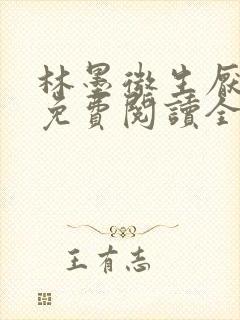 林墨微生厭
免費閱讀全
王有志